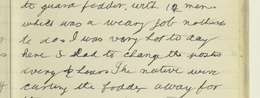 to guard fodder with 19 men
which was a weary job nothing
to do & was very hot to day
here I had to change the posts
every 4 hours The native were
carting the fodder away for